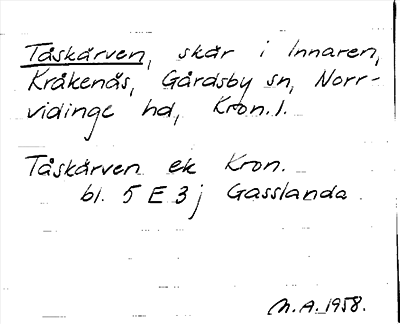 Tåskärven, skär i Innaren,
Kråkenäs, Gårdsby sn, Norr-
vidinge hd, Kron. l.
Tåskärven ek Kron.
bl. 5 E 3 j Gasslanda
M.A. 1958.